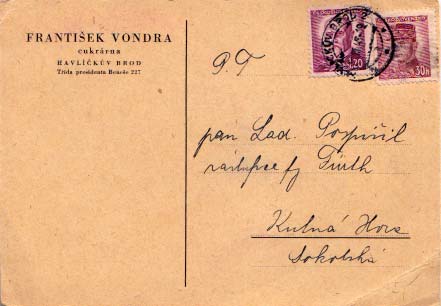 FRANTIŠEK VONDRA
cukrárna
HAVLÍČKŮV BROD
Třída presidenta Beneše 227
P. T.
1.20
30h
pan Lad. Pospíšil
zástupce fy Fürth
Kutná Hora
Sokolská